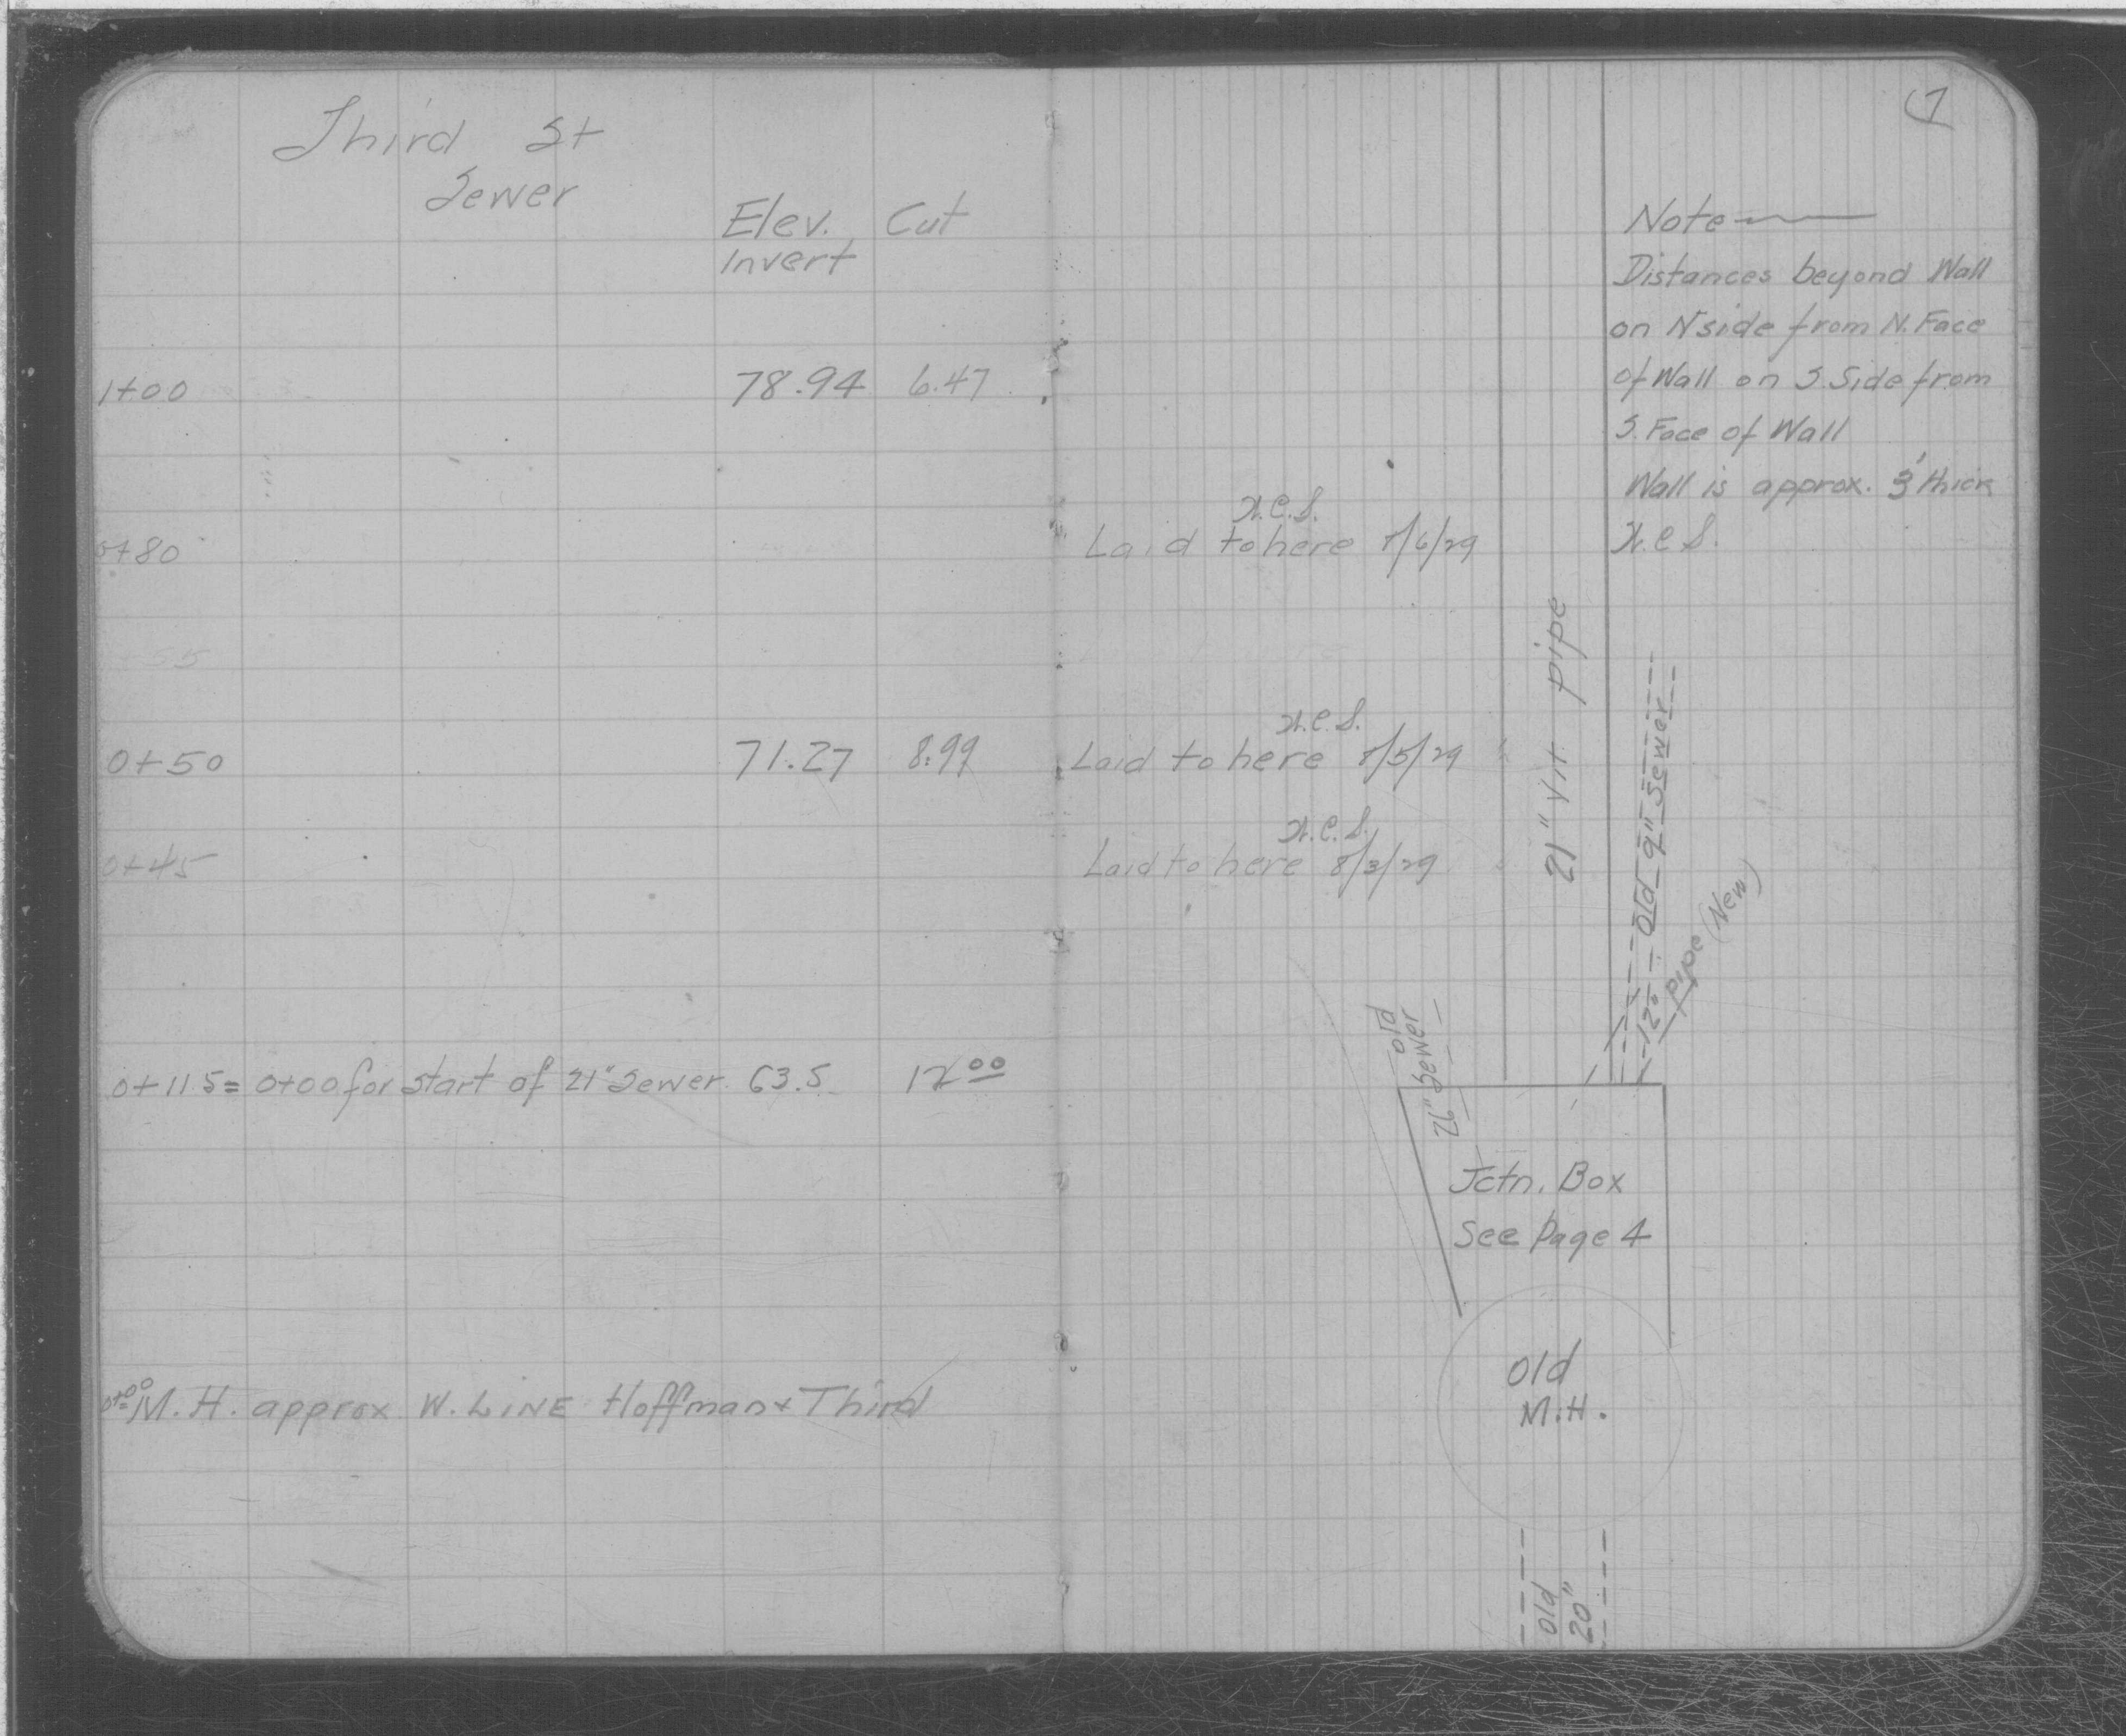 Third St
Sewer
Elev. Cut
Invert
1+00 78.94 6.47
0+80
55
0+50 71.27 8.99
0+45
0+11.5= 0+00 for start of 21" Sewer 63.5 12 00
0+00 = M.H. approx W. LINE Hoffman + Third
1
Note
Distances beyond Wall
on N side from N. Face
of Wall on S. Side from
S. Face of Wall
Wall is approx. 3' thick
H.C.S.
H.C.S.
Laid to here 8/6/29
H.C.S.
Laid to here 8/5/29
H.C.S.
Laid to here 8/3/29
21" Vit. pipe
old 9" Sewer
12" pipe (New)
old
26" Sewer
Jctn. Box
See Page 4
Old
M.H.
old
20"